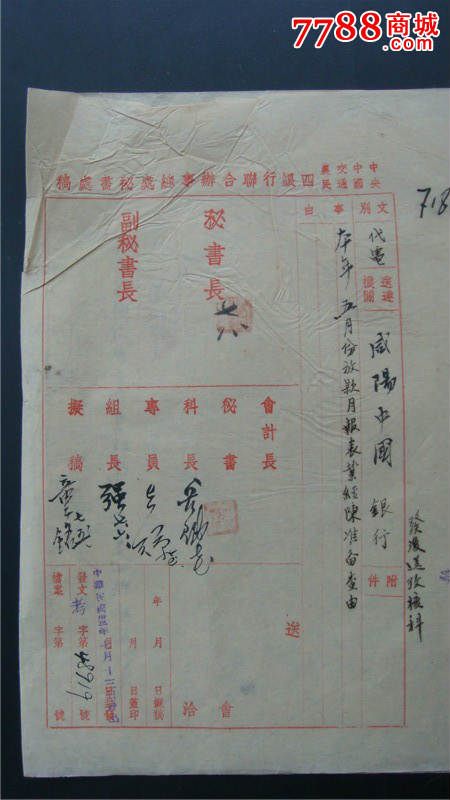 7788商城
718
中央 中國 交通 農民 四銀行聯合辦事總處秘書處稿
文別
代電
送達機關
咸陽中國銀行
附件
發後送放核科
事由
本年五月份放款月報表業經陳准備查由
秘書長
副秘書長
會計長
秘書
科長
專員
組長
擬稿
送
會
洽
年月日擬稿
月日蓋印
中華民國
發文考字第48919號
檔案字第號